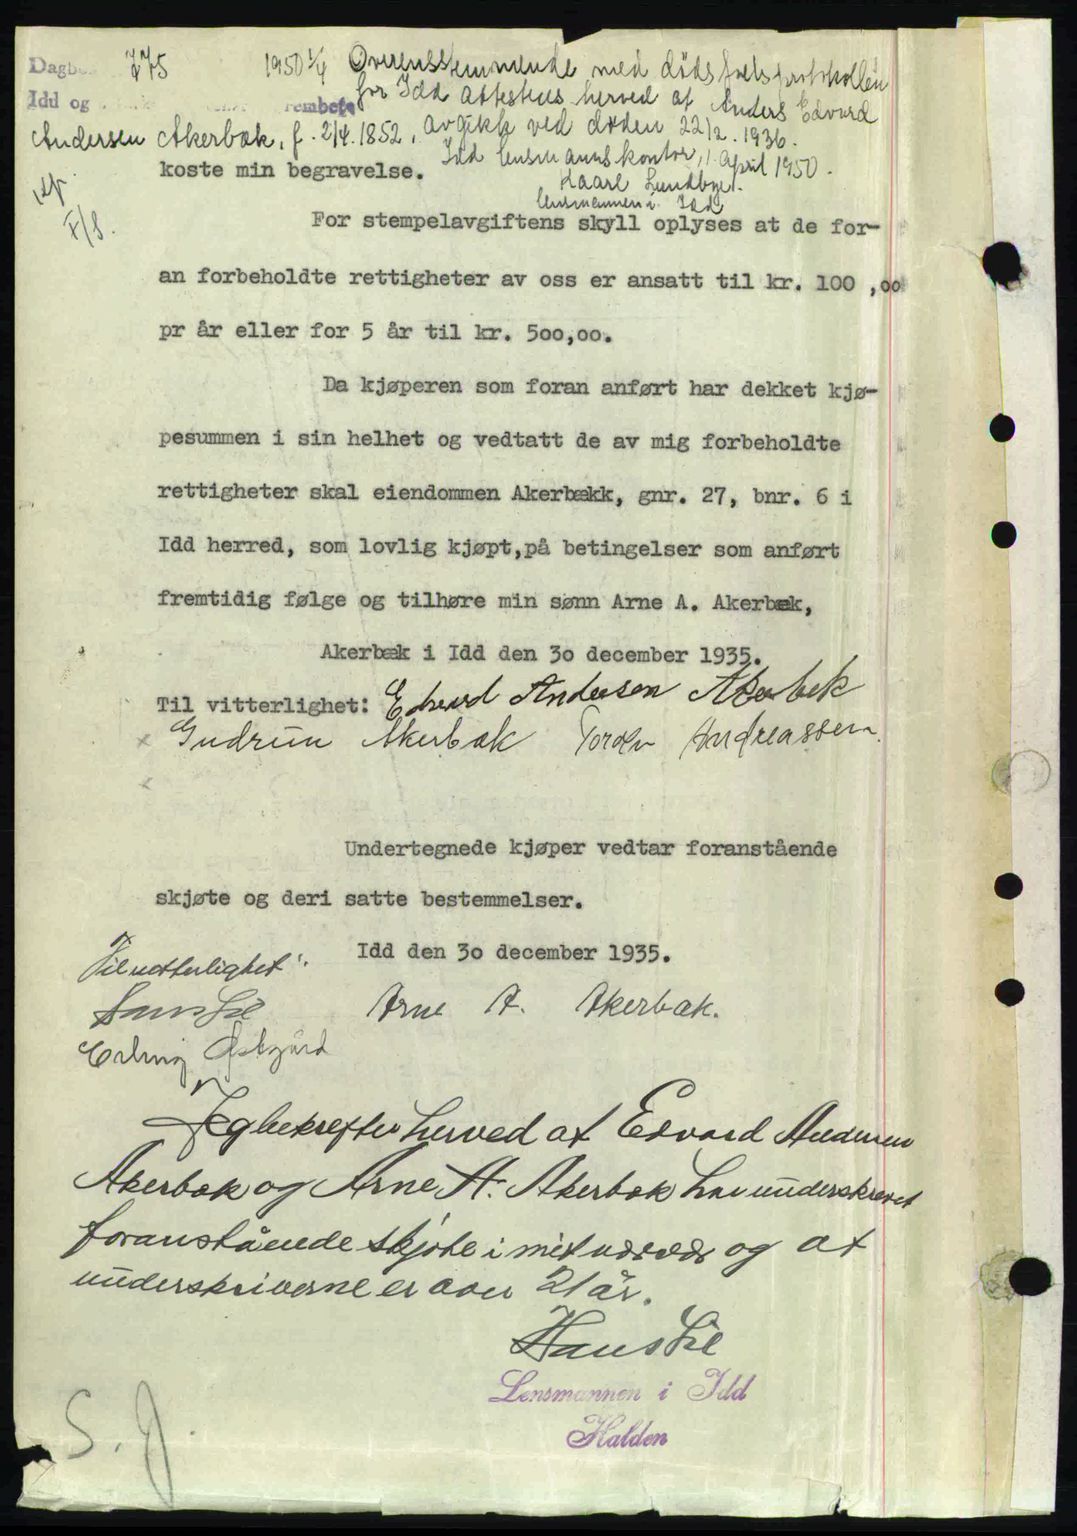 Dagb 775 1950 1/4 Overensstemmende med dødsfallsprotokollen
Idd og rembete for Idd attesteres herved at Anders Edvard
Andersen Akerbæk, f. 2/4. 1852, avgikk ved døden 22/2. 1936.
Idd lensmannskontor, 1. April 1950.
koste min begravelse.
Kaare Lundbye.
lensmannen i Idd
For stempelavgiftens skyll oplyses at de for-
an forbeholdte rettigheter av oss er ansatt til kr. 100 ,oo
pr år eller for 5 år til kr. 5oo,oo.
Da kjøperen som foran anført har dekket kjø-
pesummen i sin helhet og vedtatt de av mig forbeholdte
rettigheter skal eiendommen Akerbækk, gnr. 27, bnr. 6 i
Idd herred, som lovlig kjøpt,på betingelser som anført
fremtidig følge og tilhøre min sønn Arne A. Akerbæk,
Akerbæk i Idd den 3o december 1935.
Til vitterlighet: Edvard Andersen Akerbek
Gudrun Akerbæk Torden Andreassen
Undertegnede kjøper vedtar foranstående
skjøte og deri satte bestemmelser.
Idd den 3o december 1935.
Til vitterlighet:
Hans Lie Arne A. Akerbæk.
Erling Østgård
Jeg bekrefter herved at Edvard Andersen
Akerbæk og Arne A. Akerbæk har underskrevet
foranstående skjøte i mit nærvær og at
underskriverne er over 21 år.
Hans Lie
Lensmannen i Idd
Halden
S. J.